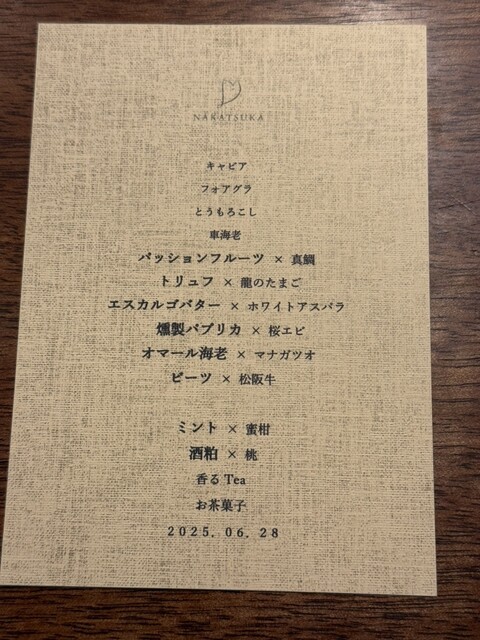 NAKATSUKA
キャビア
フォアグラ
とうもろこし
車海老
パッションフルーツ × 真鯛
トリュフ × 龍のたまご
エスカルゴバター × ホワイトアスパラ
燻製パプリカ × 桜エビ
オマール海老 × マナガツオ
ビーツ × 松阪牛
ミント × 蜜柑
酒粕 × 桃
香る Tea
お茶菓子
2025. 06. 28